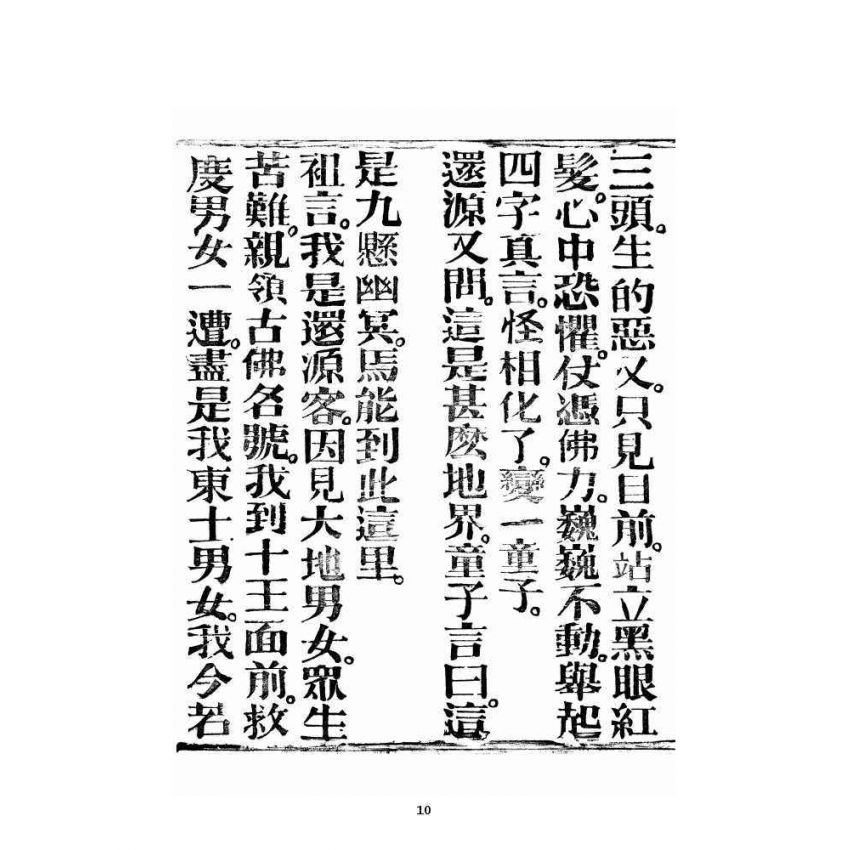 三頭。生的惡乂。只見目前。站立黑眼紅
髮。心中恐懼。仗憑佛力。巍巍不動。舉起
四字真言。怪相化了。變一童子。
還源又問。這是甚麽地界。童子言曰。這
是九懸幽冥。焉能到此這里。
祖言。我是還源客。因見大地男女。眾生
苦難。親領古佛名號。我到十王面前。救
度男女一遭。盡是我東土男女。我今若
10